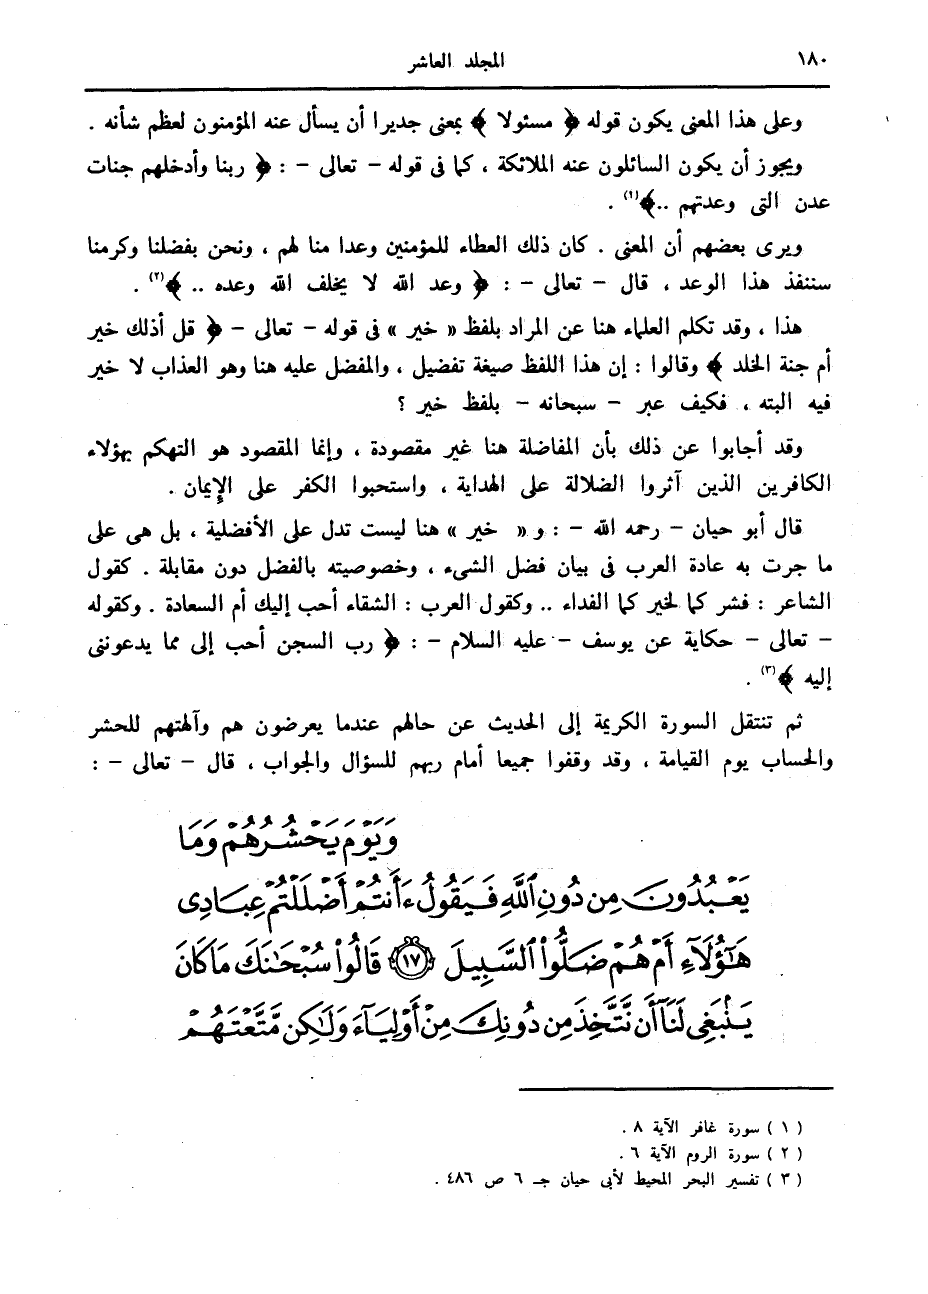 ١٨٠
المجلد العاشر
وعلى هذا المعنى يكون قوله ﴿ مسئولا ﴾ بمعنى جديرا أن يسأل عنه المؤمنون لعظم شأنه .
ويجوز أن يكون السائلون عنه الملائكة ، كما فى قوله – تعالى – : ﴿ ربنا وأدخلهم جنات
عدن التى وعدتهم .. ﴾(١) .
ويرى بعضهم أن المعنى . كان ذلك العطاء للمؤمنين وعدا منا لهم ، ونحن بفضلنا وكرمنا
سننفذ هذا الوعد ، قال – تعالى – : ﴿ وعد الله لا يخلف الله وعده .. ﴾(٢) .
هذا ، وقد تكلم العلماء هنا عن المراد بلفظ « خير » فى قوله – تعالى – ﴿ قل أذلك خير
أم جنة الخلد ﴾ وقالوا : إن هذا اللفظ صيغة تفضيل ، والمفضل عليه هنا وهو العذاب لا خير
فيه البته ، فكيف عبر – سبحانه – بلفظ خير ؟
وقد أجابوا عن ذلك بأن المفاضلة هنا غير مقصودة ، وإنما المقصود هو التهكم بهؤلاء
الكافرين الذين آثروا الضلالة على الهداية ، واستحبوا الكفر على الإيمان .
قال أبو حيان – رحمه الله – : و « خير » هنا ليست تدل على الأفضلية ، بل هى على
ما جرت به عادة العرب فى بيان فضل الشىء ، وخصوصيته بالفضل دون مقابلة . كقول
الشاعر : فشر كما لخير كما الفداء .. وكقول العرب : الشقاء أحب إليك أم السعادة . وكقوله
– تعالى – حكاية عن يوسف – عليه السلام – : ﴿ رب السجن أحب إلى مما يدعوننى
إليه ﴾(٣) .
ثم تنتقل السورة الكريمة إلى الحديث عن حالهم عندما يعرضون هم وآلهتهم للحشر
والحساب يوم القيامة ، وقد وقفوا جميعا أمام ربهم للسؤال والجواب ، قال – تعالى – :
وَيَوْمَ يَحْشُرُهُمْ وَمَا
يَعْبُدُونَ مِن دُونِ ٱللَّهِ فَيَقُولُ ءَأَنتُمْ أَضْلَلْتُمْ عِبَادِى
هَٰٓؤُلَآءِ أَمْ هُمْ ضَلُّوا۟ ٱلسَّبِيلَ ﴿١٧﴾ قَالُوا۟ سُبْحَٰنَكَ مَا كَانَ
يَنۢبَغِى لَنَآ أَن نَّتَّخِذَ مِن دُونِكَ مِنْ أَوْلِيَآءَ وَلَٰكِن مَّتَّعْتَهُمْ
( ١ ) سورة غافر الآية ٨ .
( ٢ ) سورة الروم الآية ٦ .
( ٣ ) تفسير البحر المحيط لأبى حيان جـ ٦ ص ٤٨٦ .